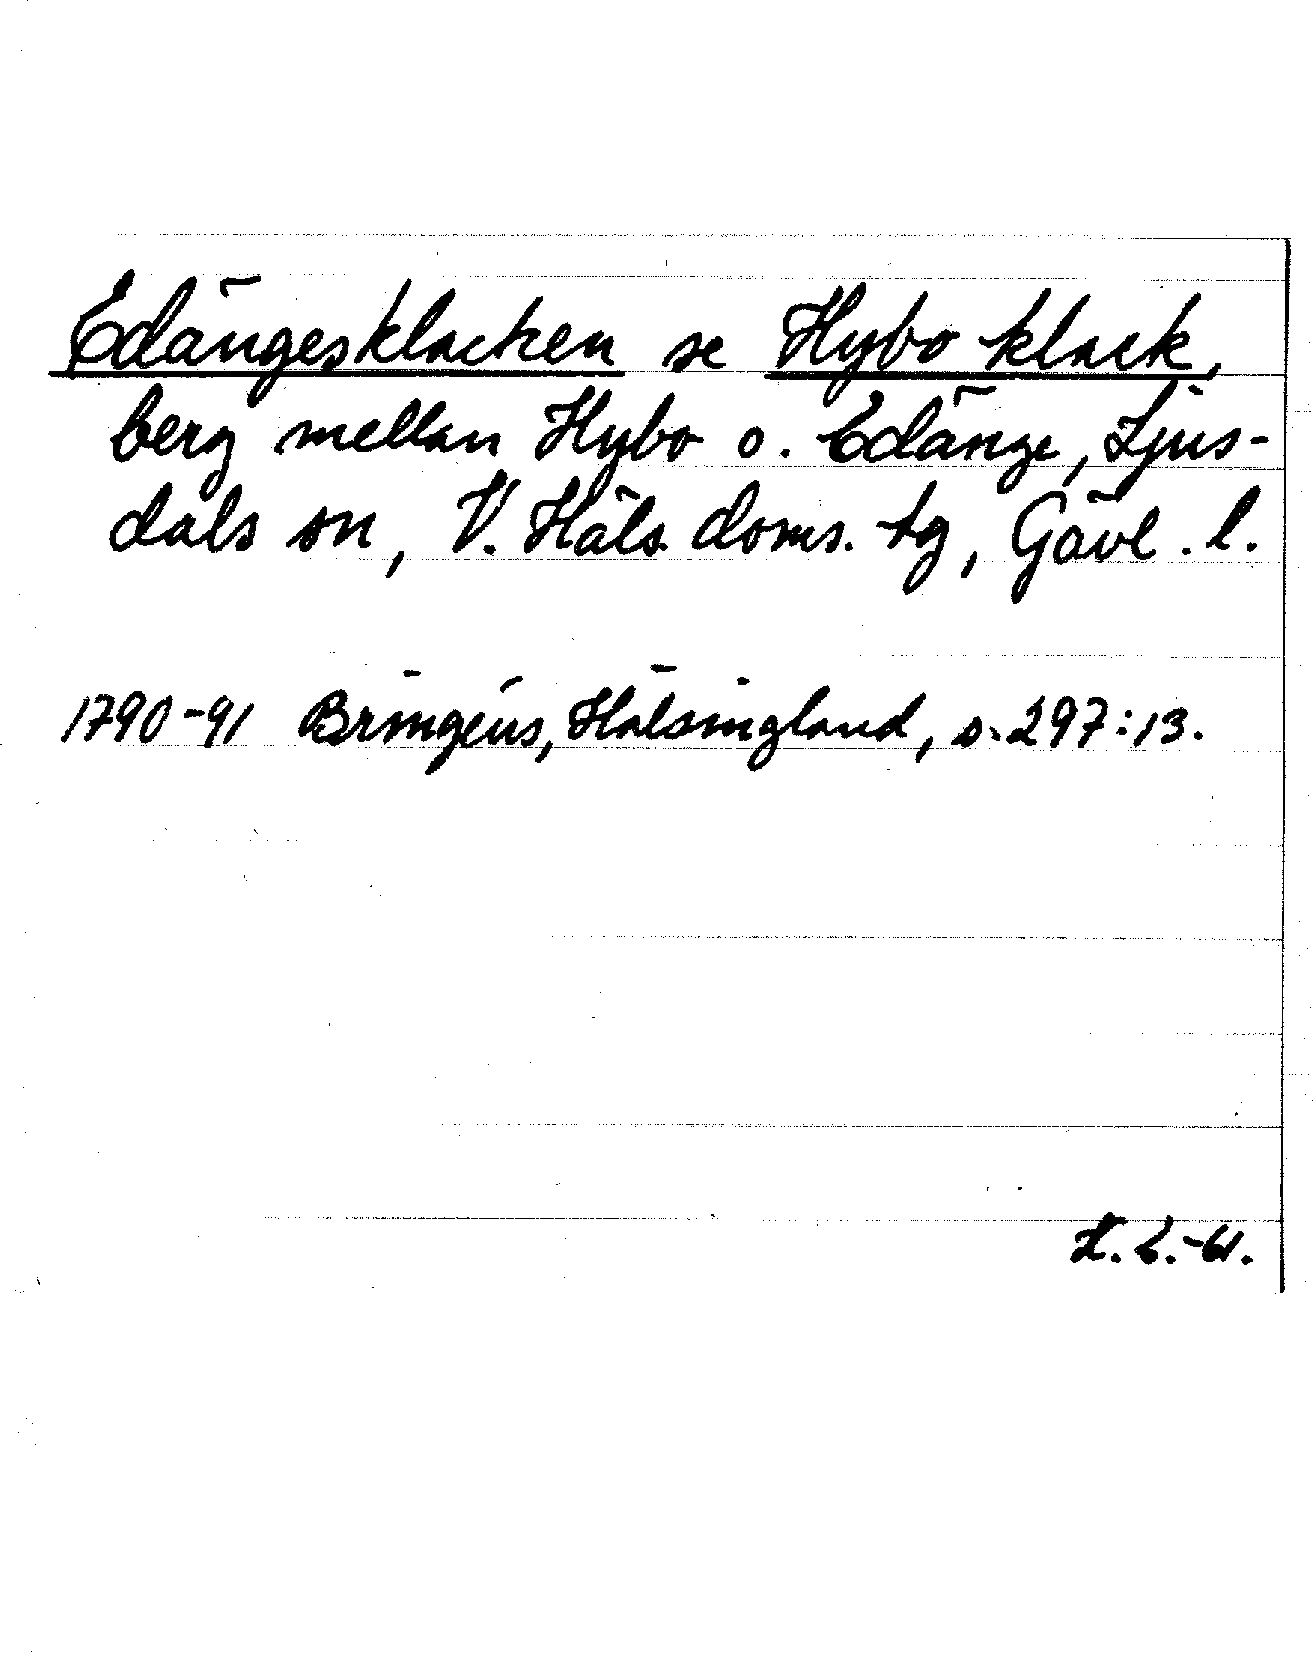 Edängesklacken se Hybo klack,
berg mellan Hybo o. Edänge, Ljus-
dals sn, V. Häls. doms. tg, Gävl. l.
1790-91 Bringéus, Hälsingland, s. 297:13.
-61.